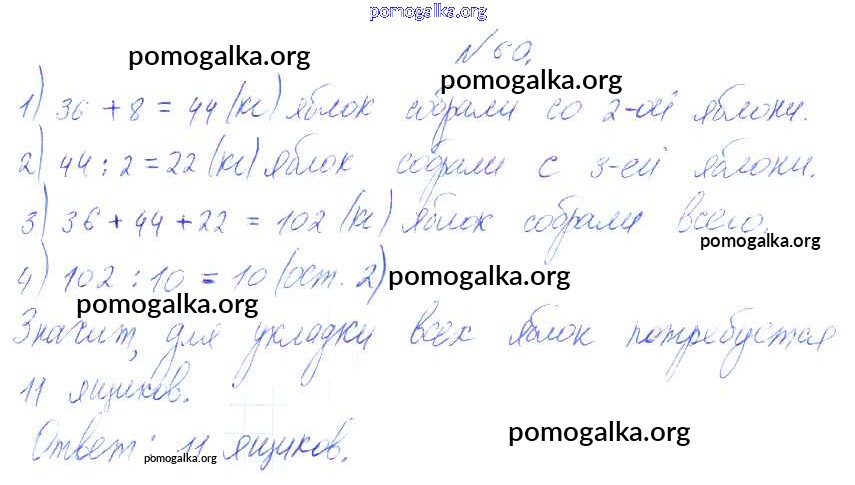 pomogalka.org
pomogalka.org
№60.
pomogalka.org
1) 36 + 8 = 44 (кг) яблок собрали со 2-ой яблони.
2) 44 : 2 = 22 (кг) яблок собрали с 3-ей яблони.
3) 36 + 44 + 22 = 102 (кг) яблок собрали всего.
pomogalka.org
4) 102 : 10 = 10 (ост. 2)
pomogalka.org
pomogalka.org
Значит, для укладки всех яблок потребуется
11 ящиков.
Ответ: 11 ящиков.
pomogalka.org
pomogalka.org